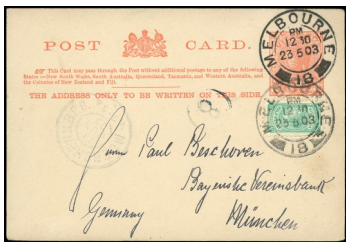 POST CARD.
This Card may pass through the Post without additional postage to any of the following
States:—New South Wales, South Australia, Queensland, Tasmania, and Western Australia, and
the Colonies of New Zealand and Fiji.
THE ADDRESS ONLY TO BE WRITTEN ON THIS SIDE.
MELBOURNE
PM
12 10
23 5 03
18
MELBOURNE
PM
12 10
23 5 03
18
Paul Beschoren
Bayerische Vereinsbank
Germany
München